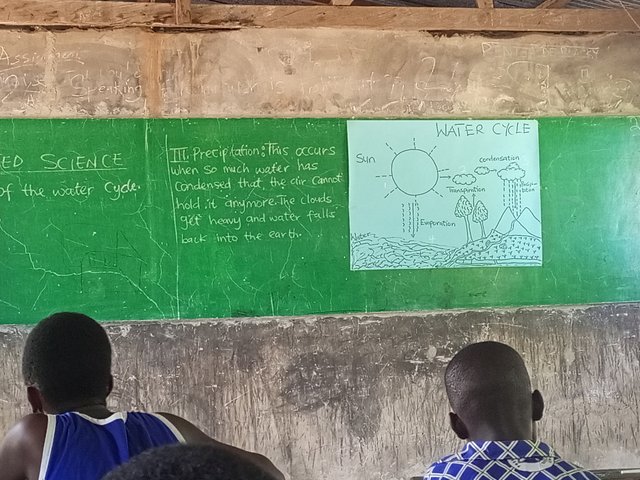 Assignment
ED SCIENCE
of the water cycle.
III. Precipitation: This occurs
when so much water has
condensed that the air cannot
hold it anymore. The clouds
get heavy and water falls
back into the earth.
WATER CYCLE
Sun
Condensation
Transpiration
Precipitation
Evaporation
Water